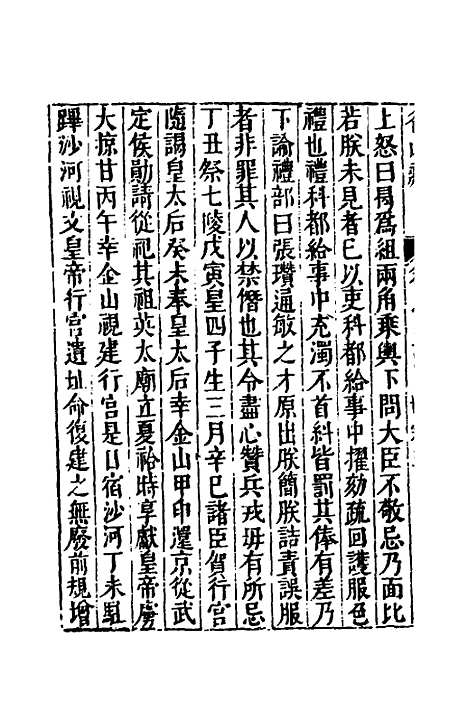 上怒曰朅爲組兩角乘輿下問大臣不敬忌乃面比
若朕未見者已以吏科都給事中擢劾疏回護服色
禮也禮科都給事中充濁不首糾皆罰其俸有差乃
下諭禮部曰張瓚遍敏之才原出朕簡朕詰責誤服
者非罪其人以禁僭也其令盡心贊兵戎毋有所忌
丁丑祭七陵戊寅皇四子生三月辛巳諸臣賀行宮
隨謁皇太后癸未奉皇太后幸金山甲申還京從武
定侯勛請從祀其祖英太廟立夏祫時享獻皇帝廟
大掠甘丙午幸金山視建行宮是日宿沙河丁未駐
蹕沙河視文皇帝行宮遺址命復建之無廢前規增